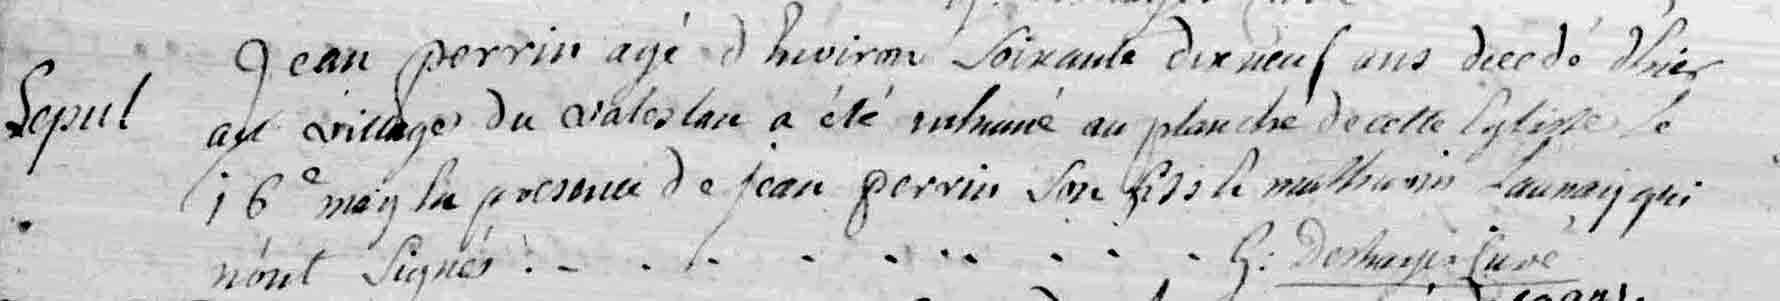 Sepul
Jean perrin agé d'heviron soixante dix neuf ans decedé d'hier
au village du valeslan a été inhumé au planché de cette Eglisse le
16e may En presence de jean perrin son fils Et mathurin Launay qui
n'ont Signés . - . . - . . . . . . - G: Curé